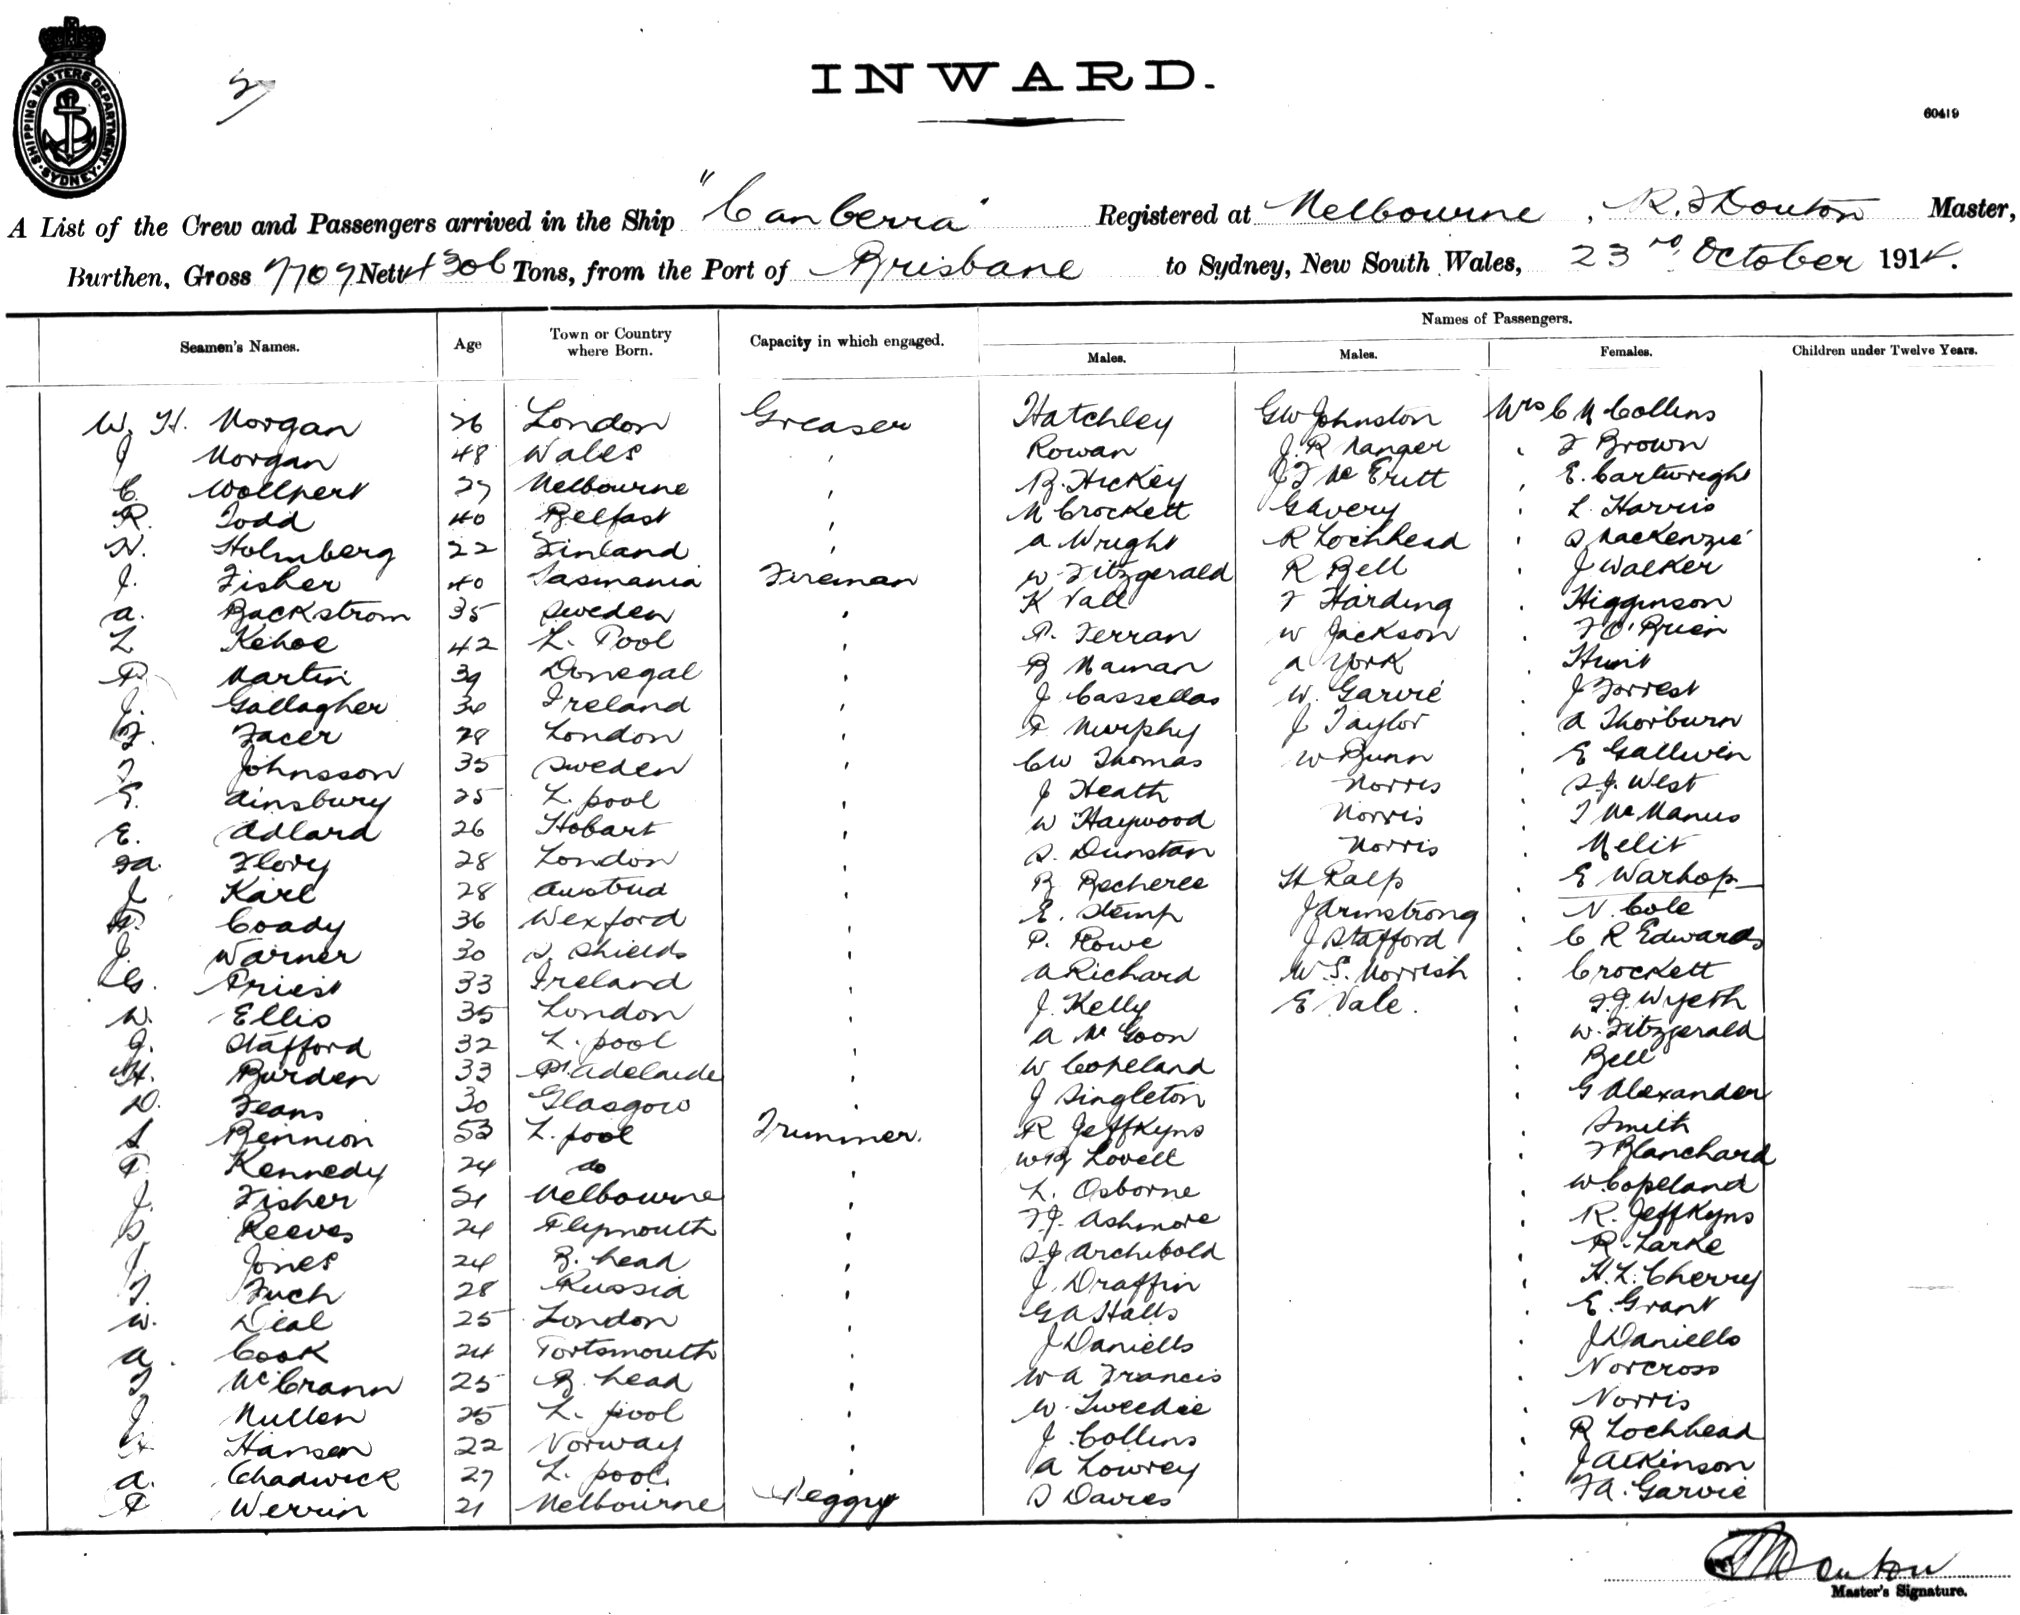 SHIPPING MASTERS DEPARTMENT
SYDNEY
INWARD.
60419
A List of the Crew and Passengers arrived in the Ship "Canberra" Registered at Melbourne, Master,
Burthen, Gross 7709 Nett 4306 Tons, from the Port of Brisbane to Sydney, New South Wales, 23rd October 1914.
Names of Passengers.
Seamen's Names. Age Town or Country where Born. Capacity in which engaged. Males. Males. Females. Children under Twelve Years.
W. H. Morgan 26 London Greaser Hatchley GW Johnston Mrs C M Collins
J Morgan 48 Wales " Rowan J. R Manger " F Brown
C. Wollpert 27 Melbourne " B. Hickey " E. Cartwright
R. Todd 40 Belfast " M Crockett G Avery " L. Harris
N. Holmberg 22 Finland " A Wright R Lochhead " S Mackenzie
J. Fisher 40 Tasmania Fireman W Fitzgerald R Bell " J Walker
A. Backstrom 35 Sweden " K Vall F Harding " Higginson
L Kehoe 42 L. Pool " P. Ferran W Jackson " F O'Brien
P. Martin 39 Donegal " B Maman A York " Hunt
J. Gallagher 34 Ireland " J Cassellas W. Garvie " J Forrest
F. Facer 28 London " P Murphy J Taylor " A Thorburn
J Johnsson 35 Sweden " CW Thomas W Bunn " E Gallwin
E. Ainsbury 25 L. pool " J Heath Norris " S.J. West
E. Adlard 26 Hobart " W Haywood Norris " T McManus
FA. Flory 28 London " S. Dunstan Norris " Melit
J. Karl 28 " B Becheree H Ralp " E Warhop
P. Coady 36 Wexford " E. Stemp J Armstrong " N. Cole
J. Warner 30 S. Shields " P. Rowe J Stafford " C R Edwards
G. Priest 33 Ireland " A Richard W. S. Morrish " Crockett
W. Ellis 35 London " J. Kelly E Vale. " F.J. Wyeth
G. Stafford 32 L. pool " A McGoon " W. Fitzgerald
H. Burden 33 Pt Adelaide " W Copeland " Bell
D. Jeans 30 Glasgow " J Singleton " G Alexander
S Bennion 53 L. pool Trimmer. R Jeffkyns " Smith
P. Kennedy 24 do " WB Lovell " F Blanchard
J. Fisher 21 Melbourne " L. Osborne " W Copeland
S. Reeves 24 Plymouth " F.J. Ashmore " R. Jeffkyns
J. Jones 24 B. head " S J Archibold " R. Larke
F. Fuch 28 Russia " J. Draffin " H. L. Cherry
W. Deal 25 London " GA Halls " E. Grant
A. Cook 24 Portsmouth " J Daniells " J Daniells
J McCrann 25 B. head " W A Francis " Norcross
J. Mullen 25 L. pool " W. Tweedie " Norris
Hansen 22 Norway " J. Collins " R Lochhead
A. Chadwick 27 L. pool. " A Lowrey " J Atkinson
P Werrin 21 Melbourne Peggy S Davies " FA. Garvie
Master's Signature.